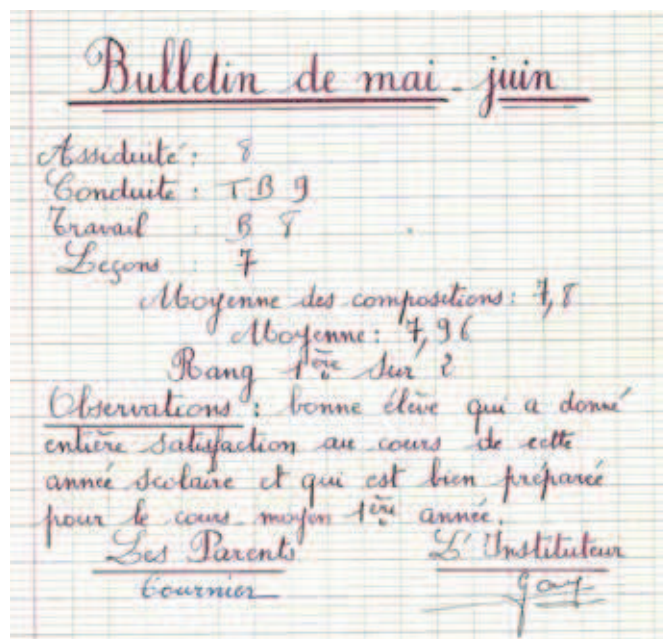 Bulletin de mai-juin
Assiduité : 8
Conduite : TB 9
Travail : B 8
Leçons : 7
Moyenne des compositions : 7,8
Moyenne : 7,96
Rang 1ère sur 2
Observations : bonne élève qui a donné
entière satisfaction au cours de cette
année scolaire et qui est bien préparée
pour le cours moyen 1ère année.
Les Parents L'Instituteur
Tournier Gay